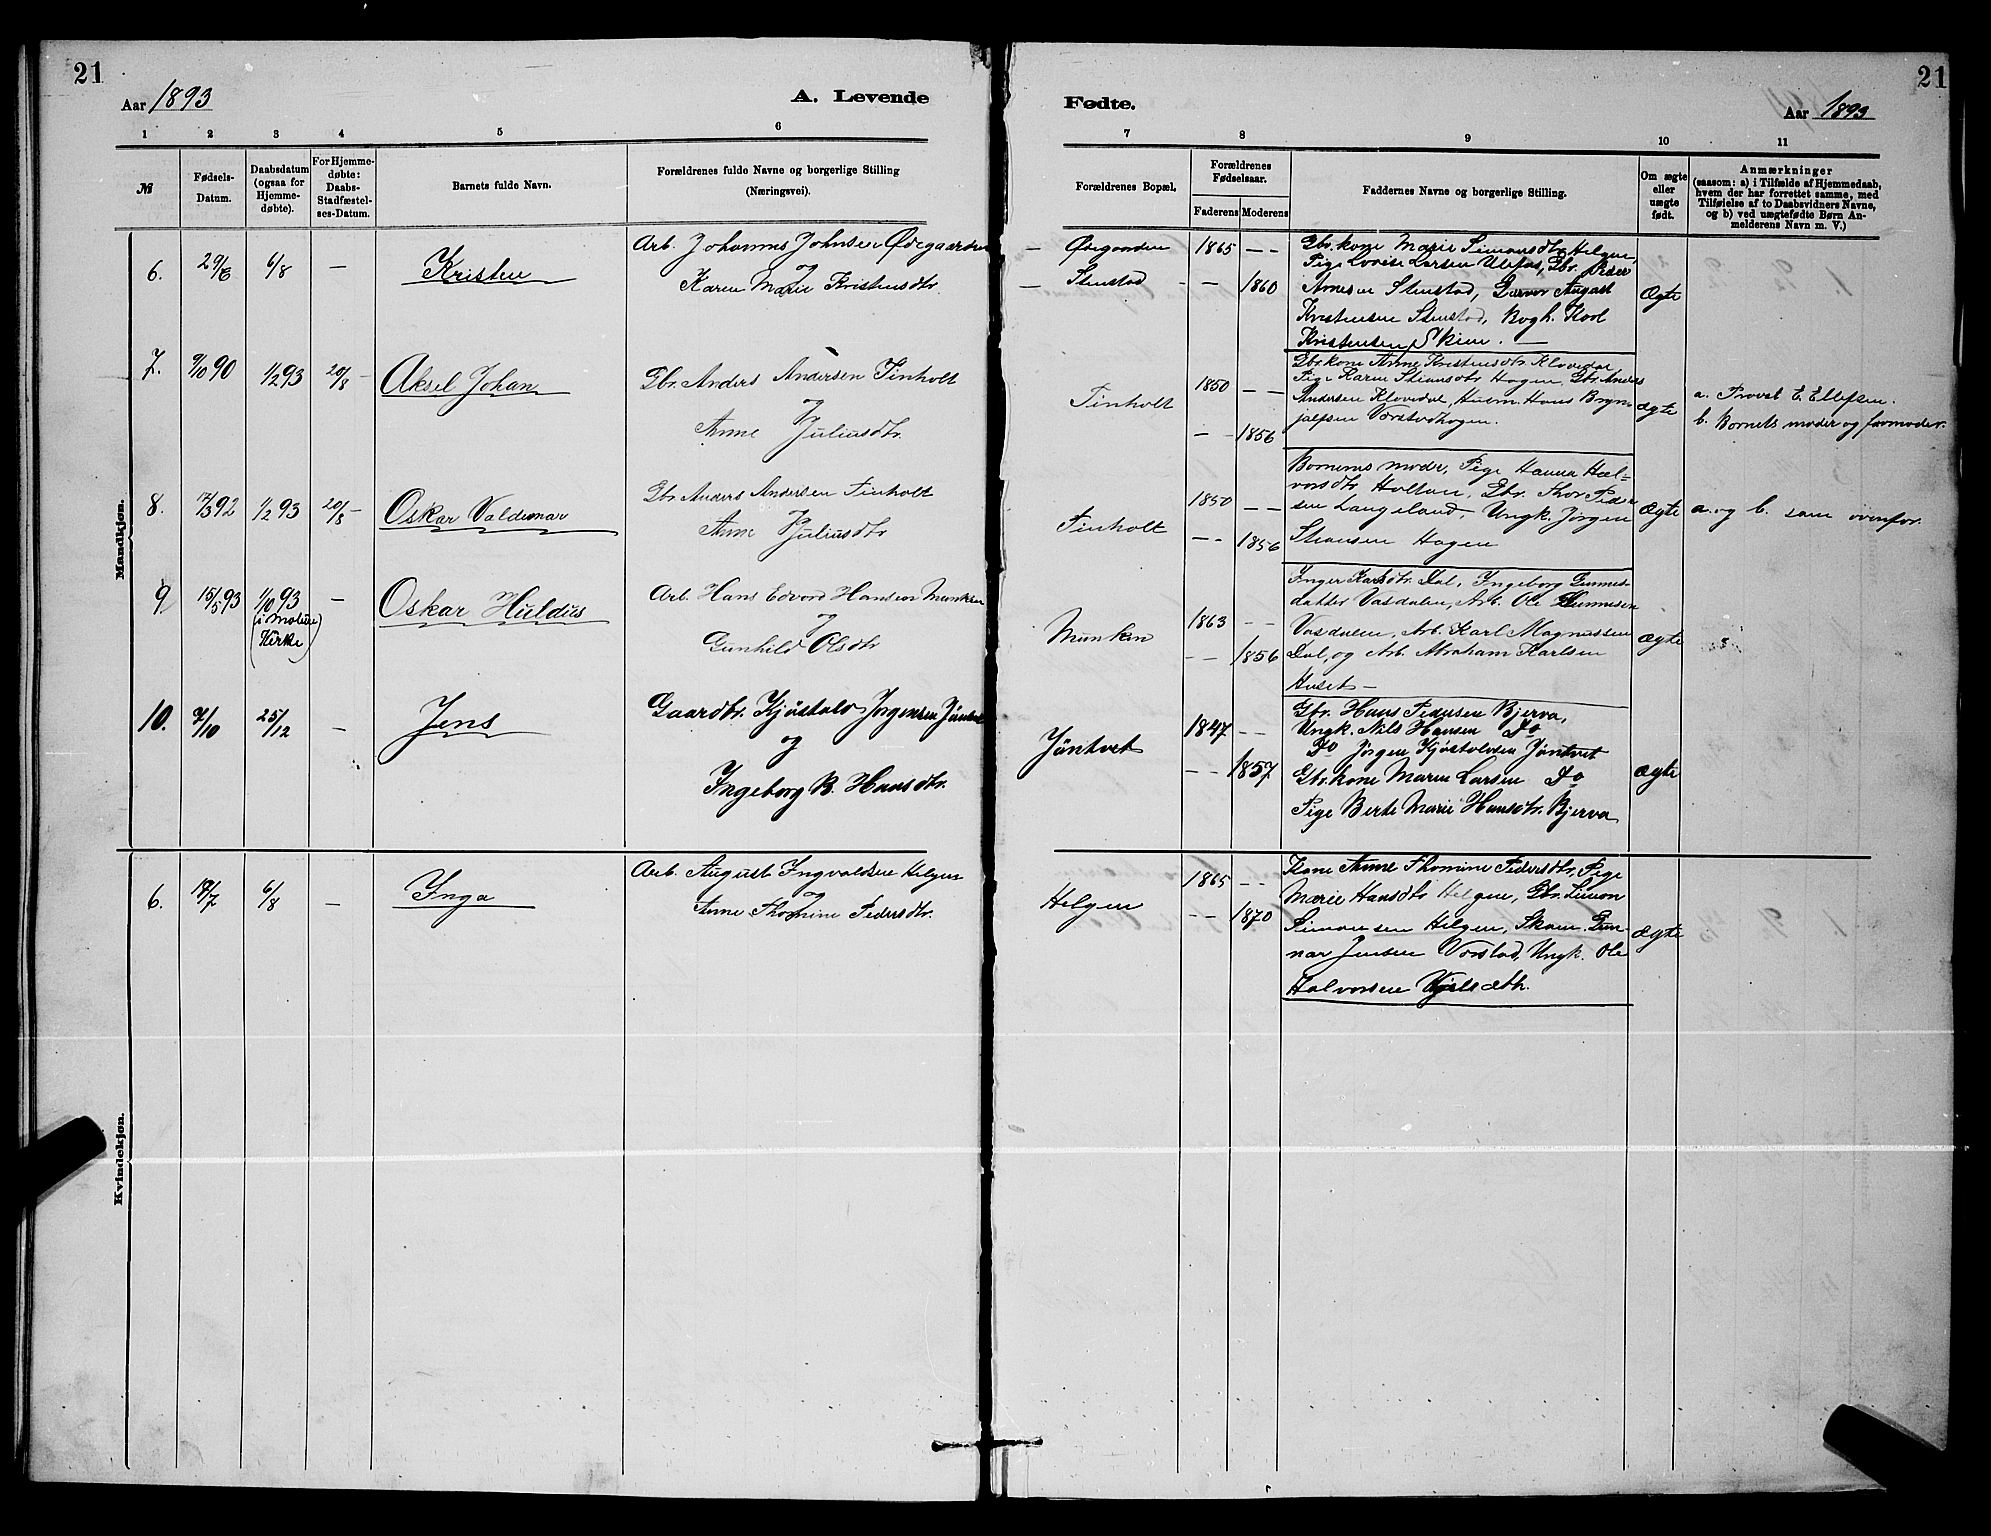 21
21
Aar 1893
A. Levende
Fødte.
Aar 1893
1 2 3 4 5 6
7 8 9 10 11
№
Fødsels-
Datum.
Daabsdatum
(ogsaa for
Hjemme-
døbte).
For Hjemme-
døbte:
Daabs-
Stadfæstel-
ses-Datum.
Barnets fulde Navn.
Forældrenes fulde Navne og borgerlige Stilling
(Næringsvei).
Forældrenes Bopæl.
Forældrenes
Fødselsaar.
Faderens Moderens
Faddernes Navne og borgerlige Stilling.
Om ægte
eller
uægte
født.
Anmærkninger
(saasom: a) i Tilfælde af Hjemmedaab,
hvem der har forrettet samme, med
Tilføielse af to Daabsvidners Navne,
og b) ved uægtefødte Børn An-
melderens Navn m. V.)
Mandkjøn.
6.
29/6
6/8
—
Kristen
Arb. Johannes Johnsen Ødegaarden
og
Karen Marie Kristensdtr.
— Øvegaarden
— Stenstad
1865 — —
— — 1860
Gbr.kone Marie Simonsdtr. Helgen,
Pige Lovise Larsen Ulefos, Gbr. Peder
Arnesen Stenstad, Garver August
Kristensen Stenstad, Bogh. Karl
Kristensen, Skien. —
Ægte
7.
9/10 90
1/2 93
20/8 —
Aksel Johan
Gbr. Anders Andersen Finholt
og
Anne Juliusdtr.
Finholt
1850 — —
— — 1856
Gbr.kone Anne Kristensdtr. Klovedal
Pige Karen Stiansdtr. Hagen, Gbr. Anders
Andersen Klovedal, Husm. Hans Bryn-
julfsen Vorstadhagen.
ægte
a. Provst E. Ellefsen.
b. Barnets moder og farmoder.
8.
17/3 92
1/2 93
20/8 —
Oskar Valdemar
Gbr. Anders Andersen Finholt
og
Anne Juliusdtr
Finholt
1850 — —
— — 1856
Barnets moder, Pige Hanna Hal-
vorsdtr Holtan, Gbr. Thor Peder
sen Langeland, Ungk. Jørgen
Stiansen Hagen
Ægte
a. og b. som ovenfor.
9
15/5 93
1/10 93
(i Melum
Kirke)
—
Oskar Huldius
Arb. Hans Edvard Hansen Munken
og
Gunhild Olsdtr
Munken
1863 — —
— — 1856
Inger Karlsdtr. Dal, Ingeborg Gunnes-
datter Vasdalen, Arb. Ole Gunnesen
Vasdalen, Arb. Karl Magnussen
Dal, og Arb. Abraham Karlsen
Huset —
Ægte
10.
7/10
25/12
—
Jens
Gaardbr. Kjøstolv Jørgensen Jøntvet
og
Ingeborg K. Hansdtr.
Jøntvet
1847 — —
— — 1857
Gbr. Hans Pedersen Bjerva,
Ungk. Nils Hansen Do
Do Jørgen Kjøstolvsen Jøntvet
Gbr.kone Maren Larsen Do
Pige Berte Marie Hansdtr. Bjerva
ægte
Kvindekjøn.
6.
17/7
6/8
—
Inga
Arb. August Ingvaldsen Helgen
og
Anne Thomine Pedersdtr.
Helgen
1865 — —
— — 1870
Kone Anne Thomine Pedersdtr. Pige
Marie Hansdtr Helgen, Gbr. Simon
Simonsen Helgen, Skom. Gun-
nar Jensen Vorstad, Ungk. Ole
Halvorsen Vjelsæth.
ægte